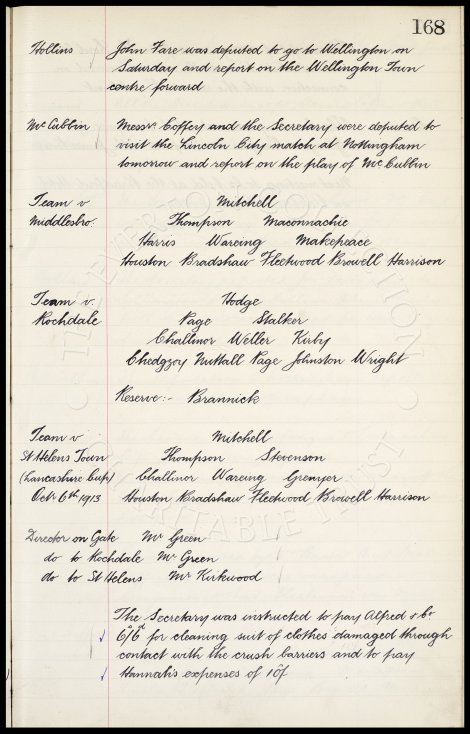 168
Hollins John Fare was deputed to go to Wellington on
Saturday and report on the Wellington Town
centre forward
Mc Cubbin Messrs. Coffey and the Secretary were deputed to
visit the Lincoln City match at Nottingham
tomorrow and report on the play of McCubbin
Team v Mitchell
Middlesbro. Thompson Maconnachie
Harris Wareing Makepeace
Houston Bradshaw Fleetwood Browell Harrison
Team v. Hodge
Rochdale Page Stalker
Challinor Weller Kirby
Chedgzoy Nuttall Page Johnston Wright
Reserve:- Brannick
Team v Mitchell
St Helens Town Thompson Stevenson
(Lancashire Cup) Challinor Wareing Grenyer
Octr 6th 1913 Houston Bradshaw Fleetwood Browell Harrison
Director on Gate Mr Green
do to Rochdale Mr Green
do to St Helens Mr Kirkwood
The Secretary was instructed to pay Alfred & Co
6/6d for cleaning suit of clothes damaged through
contact with the crush barriers and to pay
Hannah's expenses of
EVERTON COLLECTION
CHARITABLE TRUST